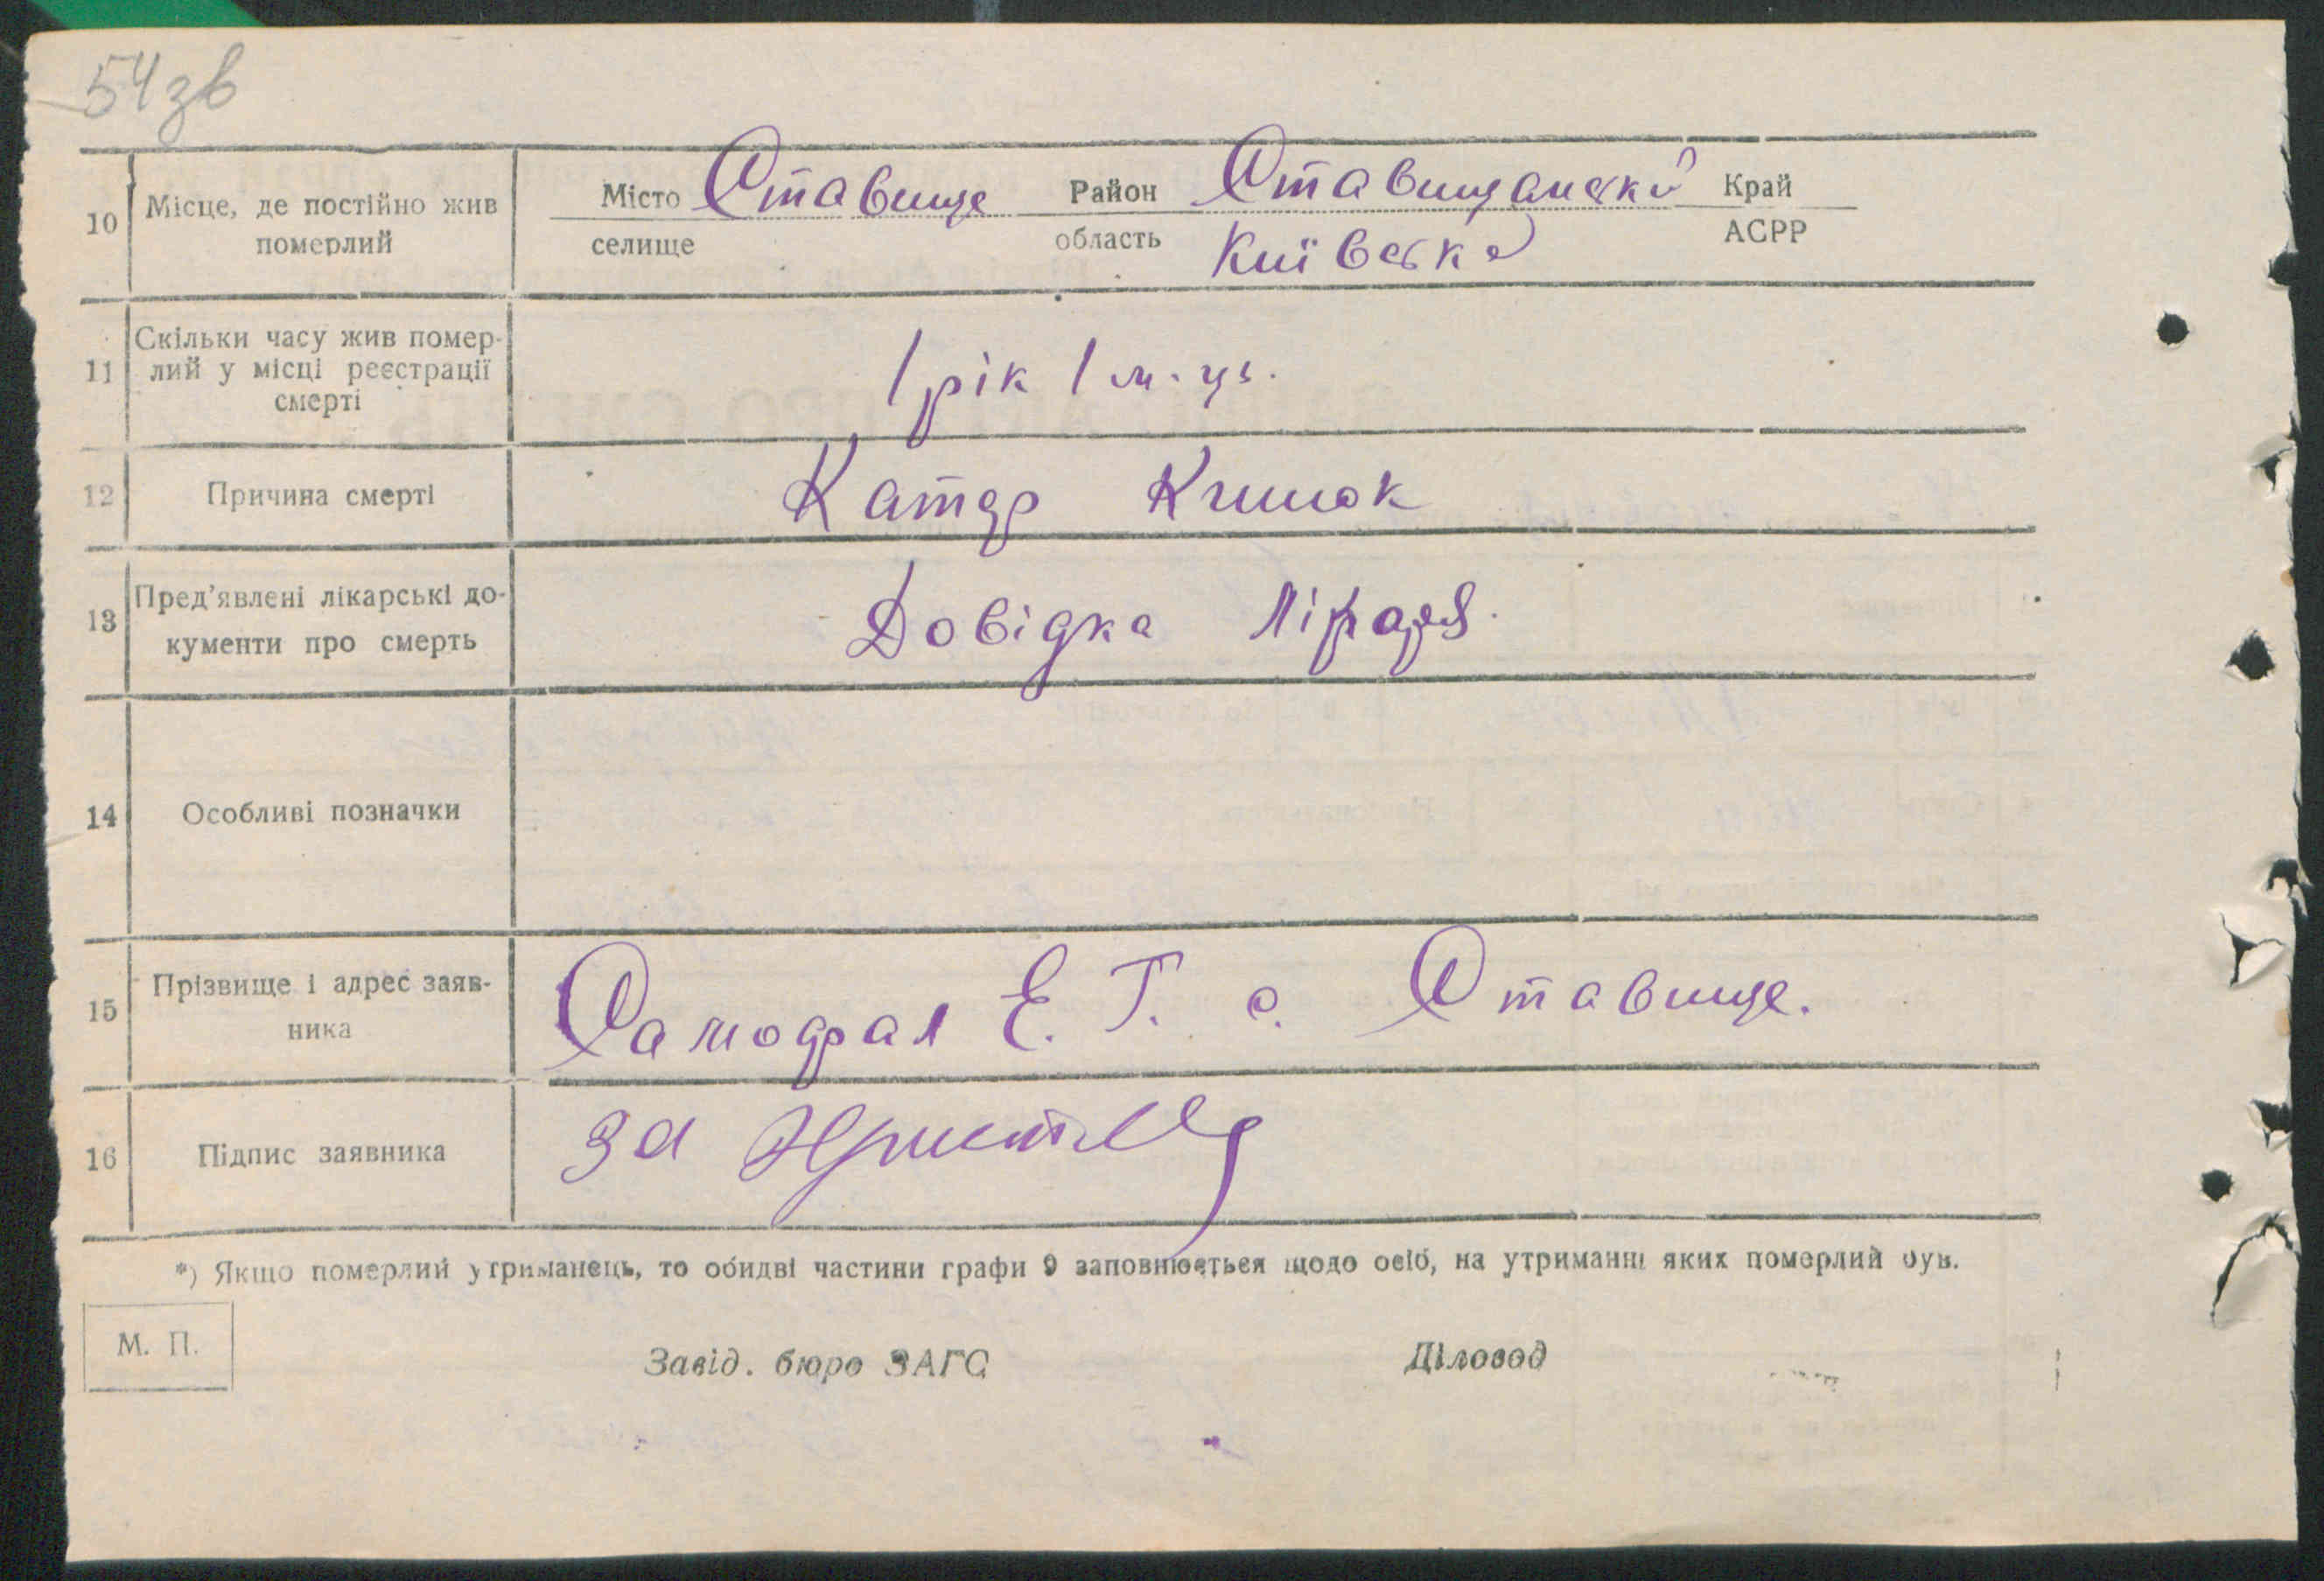 54зв
10 Місце, де постійно жив померлий
Місто Ставище Район Ставищанский Край
селище область Київська АСРР
11 Скільки часу жив помер-
лий у місці реєстрації
смерті
1 рік 1 м-ць.
12 Причина смерті Катар Кишок
13 Пред'явлені лікарські до-
кументи про смерть
Довідка
14 Особливі позначки
15 Прізвище і адрес заяв-
ника
Е. Г. с. Ставище.
16 Підпис заявника За
*) Якщо померлий утриманець, то обидві частини графи 9 заповнюється щодо осіб, на утриманні яких померлий був.
М. П.
Завід. бюро ЗАГС Діловод